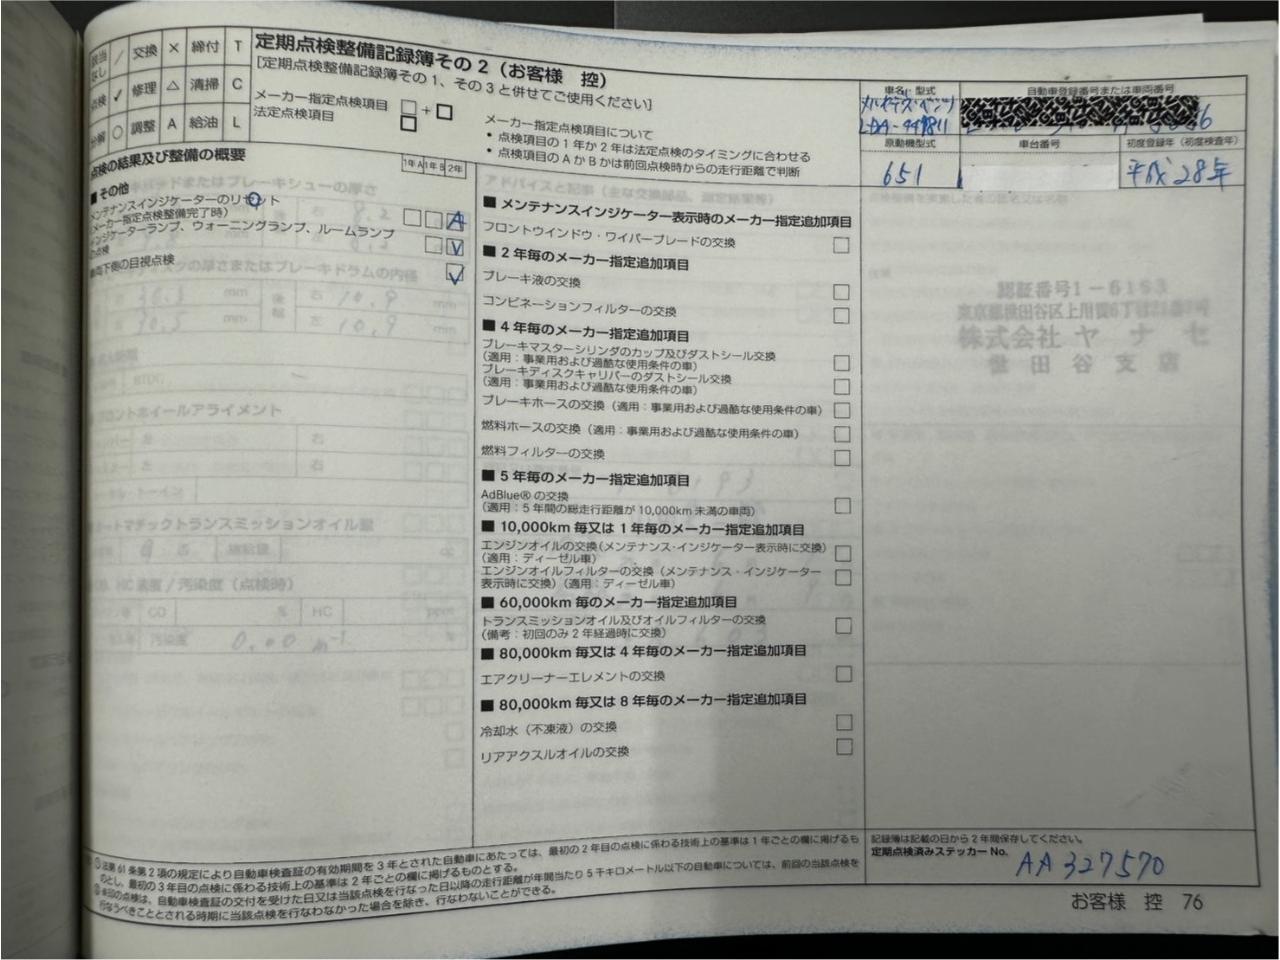 該当なし / 交換 × 締付 T
点検 ✓ 修理 △ 清掃 C
分解 ○ 調整 A 給油 L
定期点検整備記録簿その2（お客様　控）
[定期点検整備記録簿その1、その3と併せてご使用ください]
メーカー指定点検項目 □+□
法定点検項目 □
メーカー指定点検項目について
• 点検項目の1年か2年は法定点検のタイミングに合わせる
• 点検項目のAかBかは前回点検時からの走行距離で判断
車名・型式
メルセデス・ベンツ
LDA-447811
自動車登録番号または車両番号
原動機型式
651
車台番号
初度登録年（初度検査年）
平成28年
点検の結果及び整備の概要
1年A 1年B 2年
■ その他
メンテナンスインジケーターのリセット
（メーカー指定点検整備完了時） A
インジケーターランプ、ウォーニングランプ、ルームランプ
の点検 ✓
車両下側の目視点検 ✓
■ メンテナンスインジケーター表示時のメーカー指定追加項目
フロントウインドウ・ワイパーブレードの交換 □
■ 2年毎のメーカー指定追加項目
ブレーキ液の交換 □
コンビネーションフィルターの交換 □
■ 4年毎のメーカー指定追加項目
ブレーキマスターシリンダのカップ及びダストシール交換
（適用：事業用および過酷な使用条件の車） □
ブレーキディスクキャリパーのダストシール交換
（適用：事業用および過酷な使用条件の車） □
ブレーキホースの交換（適用：事業用および過酷な使用条件の車） □
燃料ホースの交換（適用：事業用および過酷な使用条件の車） □
燃料フィルターの交換 □
■ 5年毎のメーカー指定追加項目
AdBlue®の交換
（適用：5年間の総走行距離が10,000km未満の車両） □
■ 10,000km毎又は1年毎のメーカー指定追加項目
エンジンオイルの交換（メンテナンス・インジケーター表示時に交換）
（適用：ディーゼル車） □
エンジンオイルフィルターの交換（メンテナンス・インジケーター
表示時に交換）（適用：ディーゼル車） □
■ 60,000km毎のメーカー指定追加項目
トランスミッションオイル及びオイルフィルターの交換
（備考：初回のみ2年経過時に交換） □
■ 80,000km毎又は4年毎のメーカー指定追加項目
エアクリーナーエレメントの交換 □
■ 80,000km毎又は8年毎のメーカー指定追加項目
冷却水（不凍液）の交換 □
リアアクスルオイルの交換 □
認証番号1-6183
株式会社 ヤナセ
世田谷支店
① 法第61条第2項の規定により自動車検査証の有効期間を3年とされた自動車にあたっては、最初の2年目の点検に係わる技術上の基準は1年ごとの欄に掲げるも
のとし、最初の3年目の点検に係わる技術上の基準は2年ごとの欄に掲げるものとする。
② 印の点検は、自動車検査証の交付を受けた日又は当該点検を行なった日以降の走行距離が年間当たり5千キロメートル以下の自動車については、前回の当該点検を
行なうべきこととされる時期に当該点検を行なわなかった場合を除き、行なわないことができる。
記録簿は記載の日から2年間保存してください。
定期点検済みステッカーNo.
AA327570
お客様　控　76